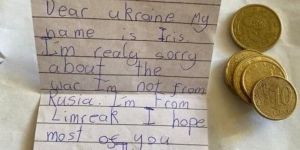 Dear ukraine My
name is Iris
I'm realy sorry
about the
war I'm not from
Rusia. I'm From
Limreak I hope
most of you
10